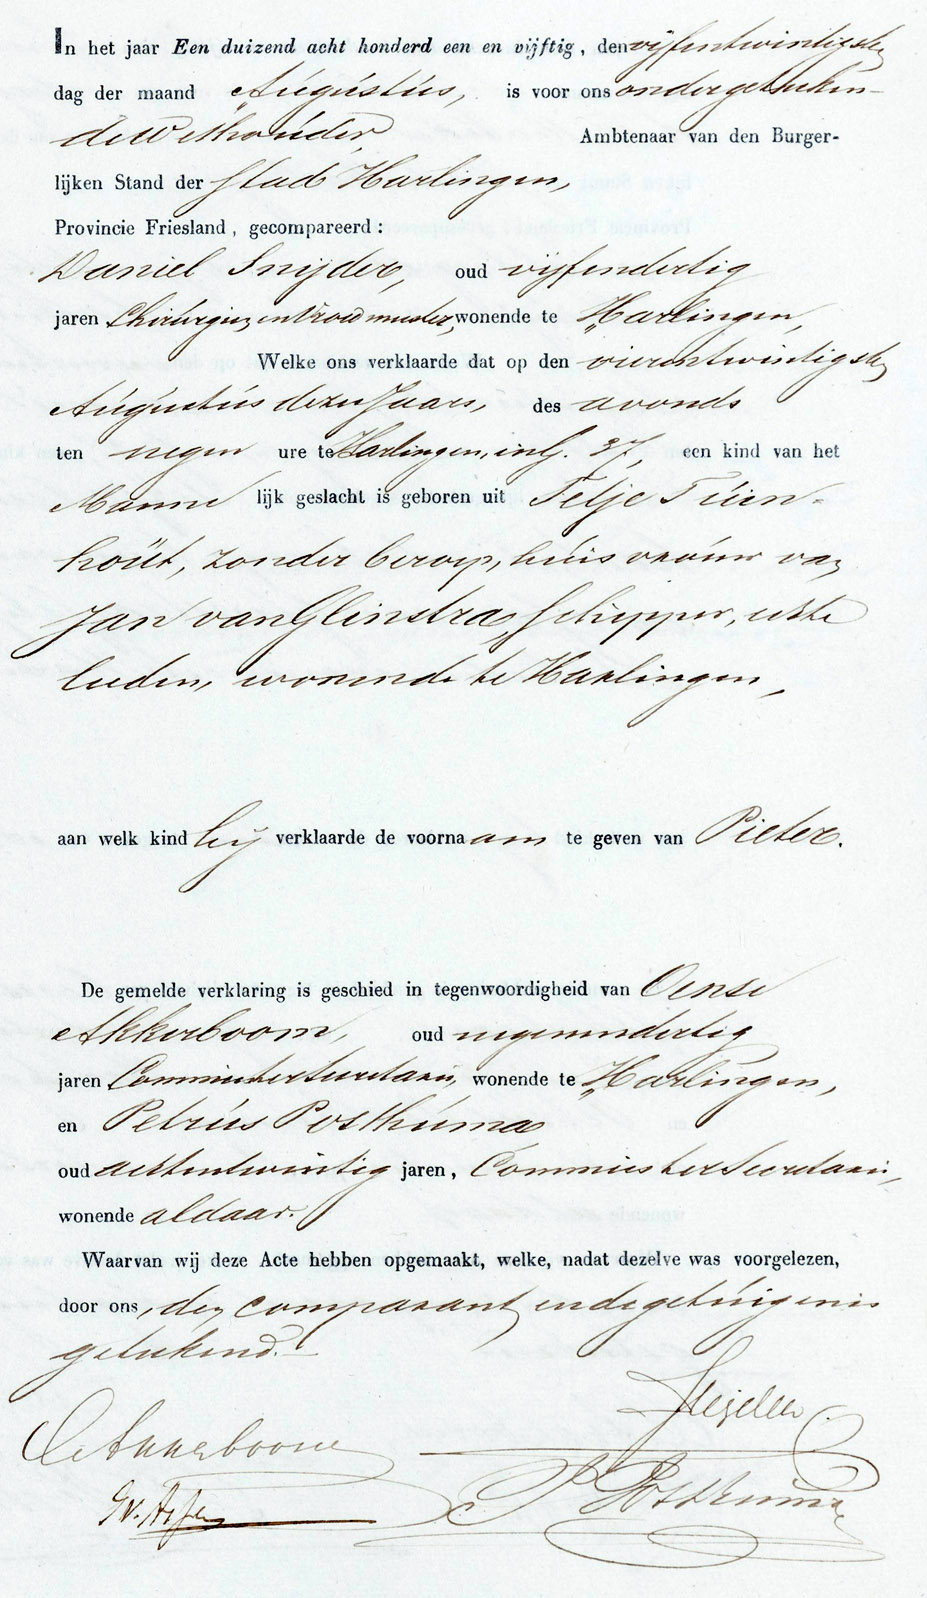 In het jaar Een duizend acht honderd een en vijftig, den vijfentwintigsten
dag der maand Augustus, is voor ons ondergeteeken-
de Wethouder, Ambtenaar van den Burger-
lijken Stand der Stad Harlingen,
Provincie Friesland, gecompareerd:
Daniel Snijder, oud vijfendertig
jaren Chirurgijn en Vroedmeester, wonende te Harlingen,
Welke ons verklaarde dat op den vierentwintigsten
Augustus dezer Jaars, des avonds
ten negen ure te Harlingen, in G. 37, een kind van het
Manne lijk geslacht is geboren uit Tetje Tuin-
hout, zonder beroep, huisvrouw van
Jan van Glinstra, Schipper, echte
lieden, wonende te Harlingen,
aan welk kind hij verklaarde de voornaam te geven van Pieter.
De gemelde verklaring is geschied in tegenwoordigheid van Oense
Akkerboom, oud negenendertig
jaren Commies ter Secretarie, wonende te Harlingen,
en Petrus Posthuma
oud achtentwintig jaren, Commies ter Secretarie,
wonende aldaar.
Waarvan wij deze Acte hebben opgemaakt, welke, nadat dezelve was voorgelezen,
door ons, den comparant en de getuigen is
geteekend.
O Akkerboom
P Posthuma